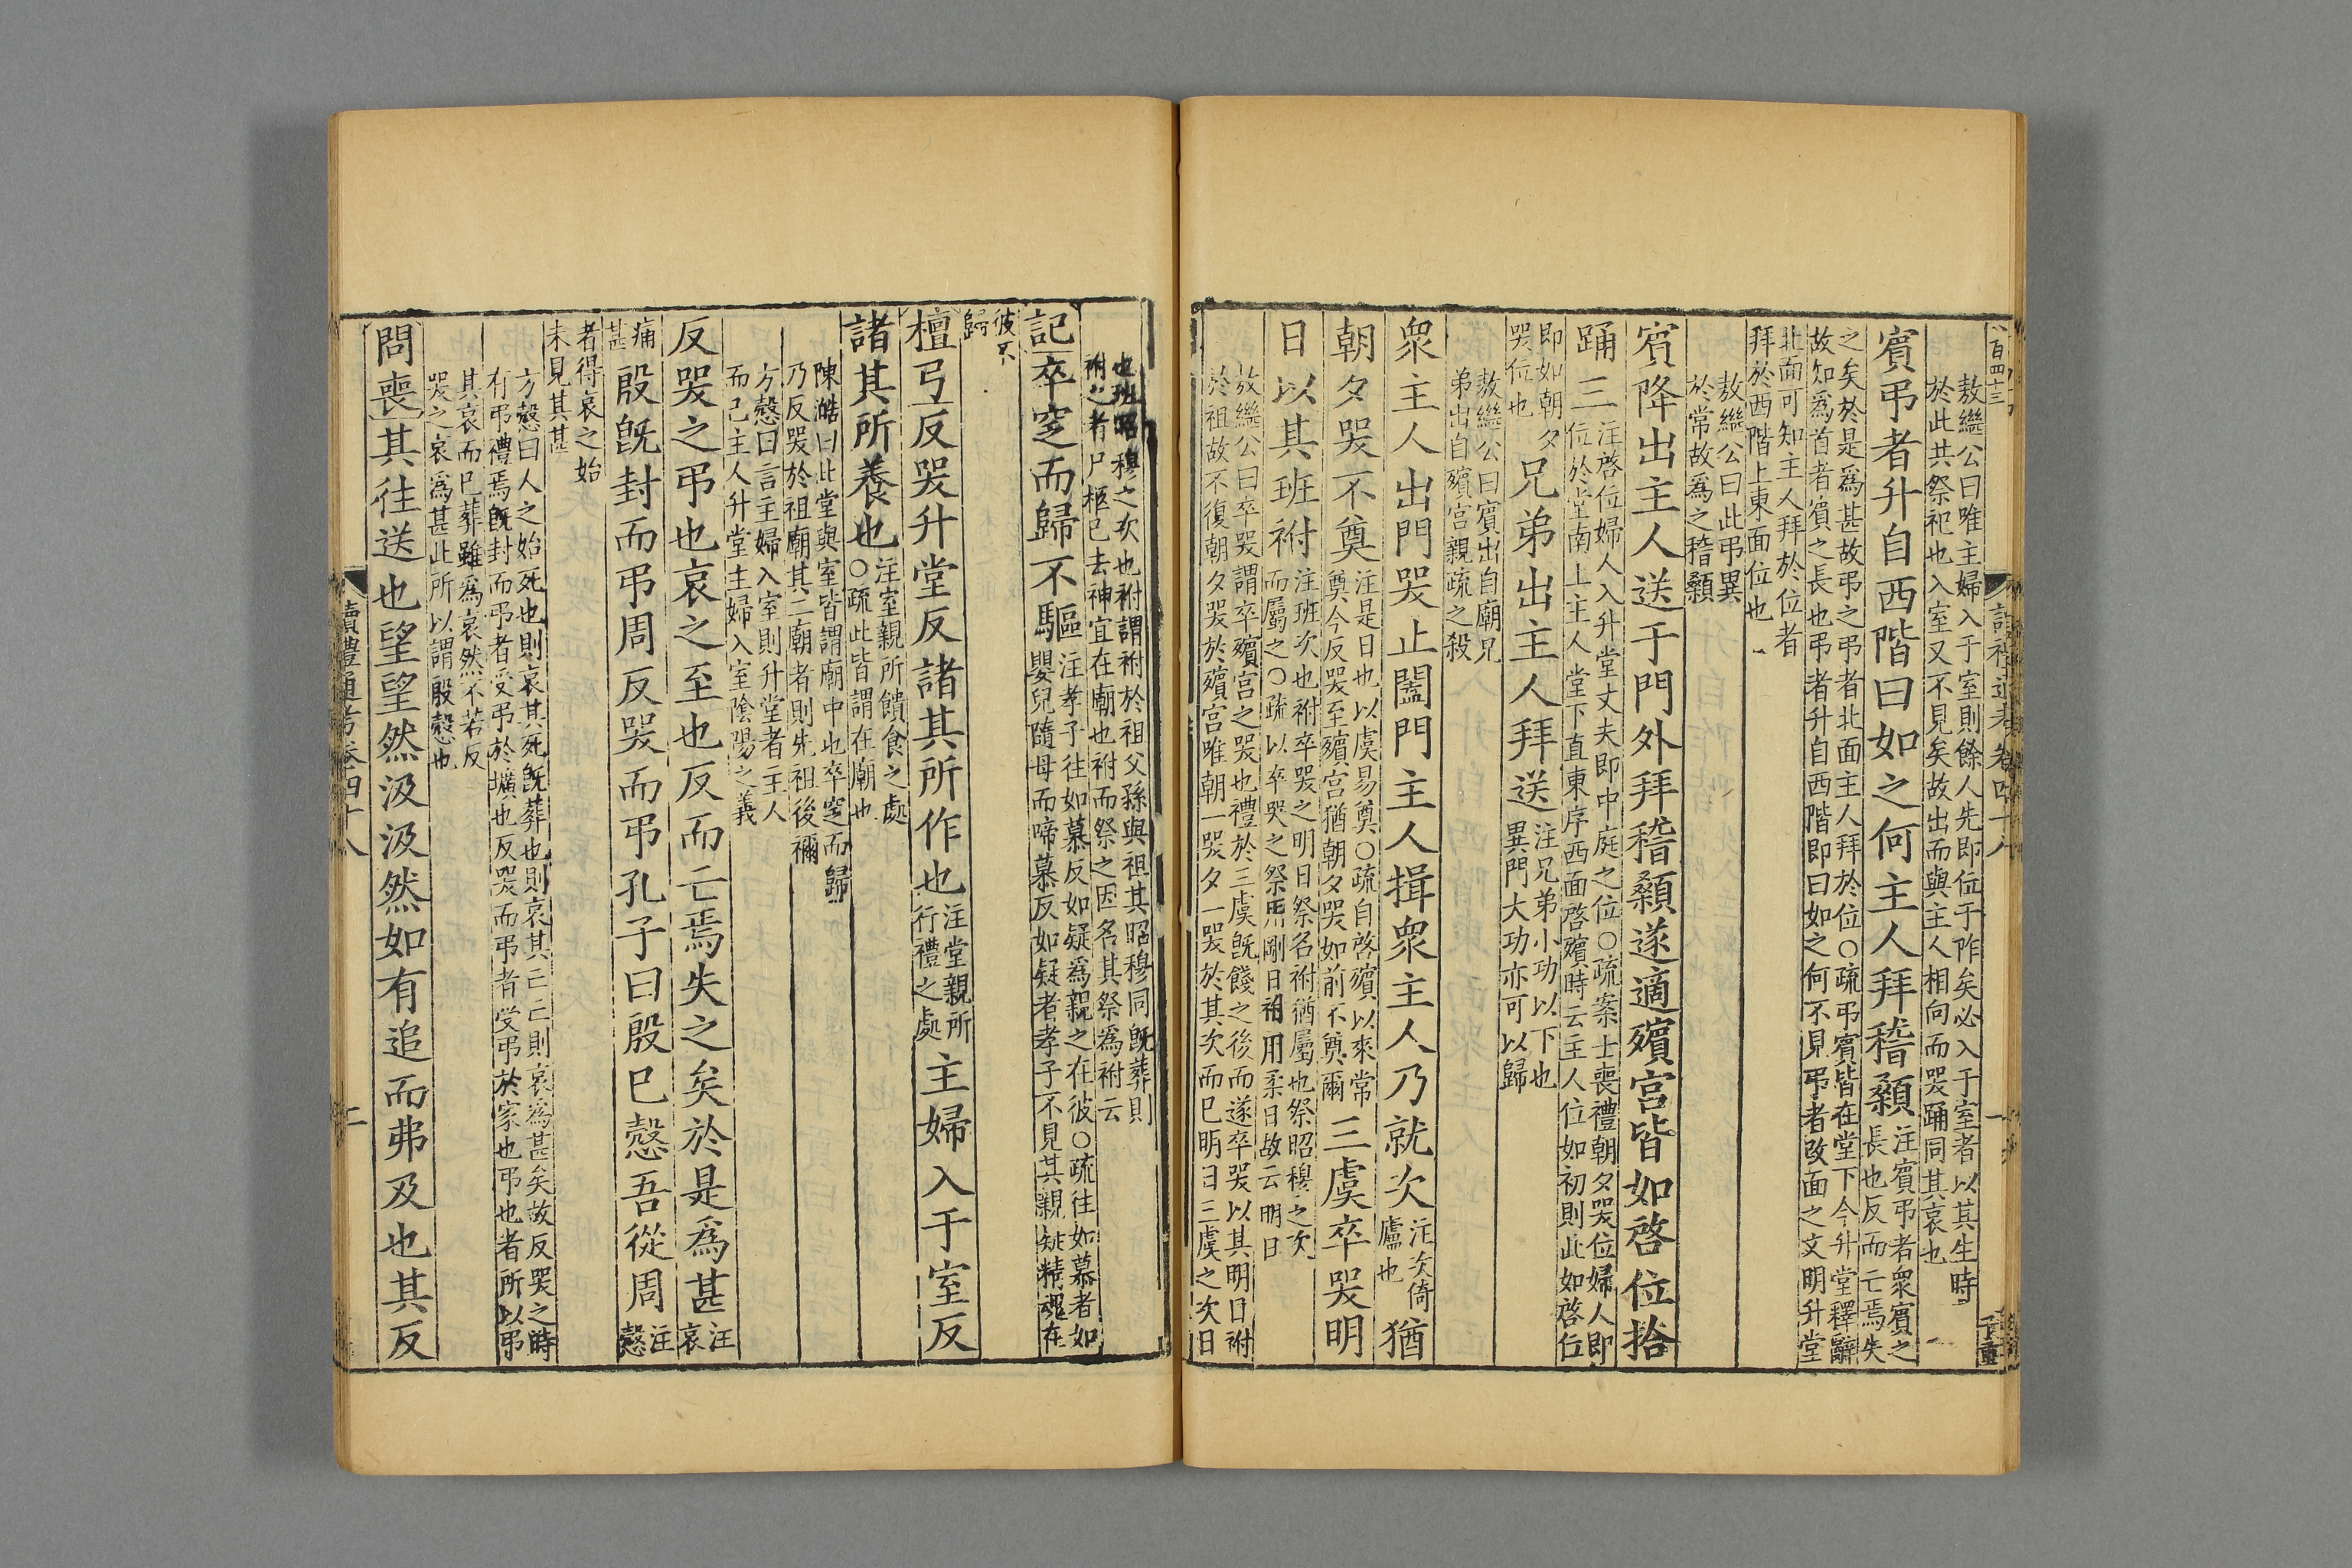 敖繼公曰唯主婦入于室則餘人先即位于阼矣必入于室者以其生時
於此共祭祀也入室又不見矣故出而與主人相向而哭踊同其哀也
賓弔者升自西階曰如之何主人拜稽顙注賓弔者衆賓之長也反而亡焉失
之矣於是爲甚故弔之弔者北面主人拜於位○疏弔賓皆在堂下今升堂釋辭
故知爲首者賓之長也弔者升自西階即曰如之何不見弔者改面之文明升堂
北面可知主人拜於位者
拜於西階上東面位也
敖繼公曰此弔異
於常故爲之稽顙
賓降出主人送于門外拜稽顙遂適殯宮皆如啓位拾
踊三注啓位婦人入升堂丈夫即中庭之位○疏案士喪禮朝夕哭位婦人即
位於堂南上主人堂下直東序西面啓殯時云主人位如初則此如啓位
即如朝夕
哭位也
兄弟出主人拜送注兄弟小功以下也
異門大功亦可以歸
敖繼公曰賓出自廟兄
弟出自殯宮親疏之殺
衆主人出門哭止闔門主人揖衆主人乃就次注次倚
廬也
猶
朝夕哭不奠注是日也以虞易奠○疏自啓殯以來常
奠今反哭至殯宮猶朝夕哭如前不奠爾
三虞卒哭明
日以其班祔注班次也祔卒哭之明日祭名祔猶屬也祭昭穆之次
而屬之○疏以卒哭之祭用剛日祔用柔日故云明日
敖繼公曰卒哭謂卒殯宮之哭也禮於三虞既餞之後而遂卒哭以其明日祔
於祖故不復朝夕哭於殯宮唯朝一哭夕一哭於其次而已明日三虞之次日
也班昭穆之次也祔謂祔於祖父孫與祖其昭穆同既葬則
祔之者尸柩已去神宜在廟也祔而祭之因名其祭爲祔云
記卒窆而歸不驅注孝子往如慕反如疑爲親之在彼○疏往如慕者如
嬰兒隨母而啼慕反如疑者孝子不見其親疑精魂在
彼不
歸
檀弓反哭升堂反諸其所作也注堂親所
行禮之處
主婦入于室反
諸其所養也注室親所饋食之處
○疏此皆謂在廟也
陳澔曰此堂與室皆謂廟中也卒窆而歸
乃反哭於祖廟其二廟者則先祖後禰
方慤曰言主婦入室則升堂者主人
而已主人升堂主婦入室陰陽之義
反哭之弔也哀之至也反而亡焉失之矣於是爲甚注
哀
痛
甚
殷既封而弔周反哭而弔孔子曰殷已慤吾從周注
慤
者得哀之始
未見其甚
方慤曰人之始死也則哀其死既葬也則哀其亡亡則哀爲甚矣故反哭之時
有弔禮焉既封而弔者受弔於壙也反哭而弔者受弔於家也弔也者所以弔
其哀而已葬雖爲哀然不若反
哭之哀爲甚此所以謂殷慤也
問喪其往送也望望然汲汲然如有追而弗及也其反
讀禮通考卷四十八
二